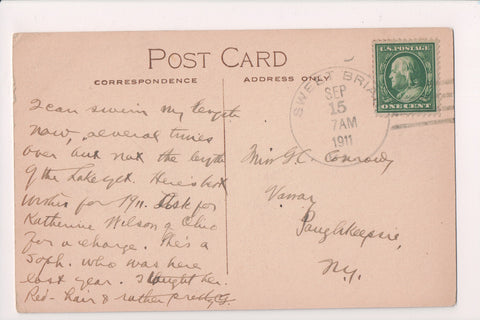 POST CARD
CORRESPONDENCE
ADDRESS ONLY
I can swim my length
now, several times
over but not the length
of the Lake yet. Here's best
wishes for 1911. Ask for
Katherine Wilson a Ohio
for a charge. She's a
Soph. who was here
last year. I taught her.
Red-hair & rather pretty.
SWEET BRIAR
SEP
15
7AM
1911
U.S. POSTAGE
ONE CENT
Miss G. C.
Vassar
Poughkeepsie,
N.Y.